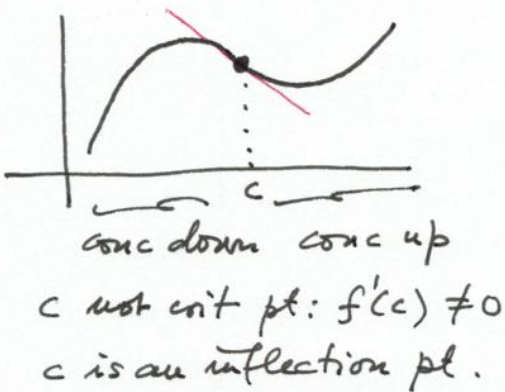 c
conc down conc up
c not crit pt: f'(c) ≠ 0
c is an inflection pt.